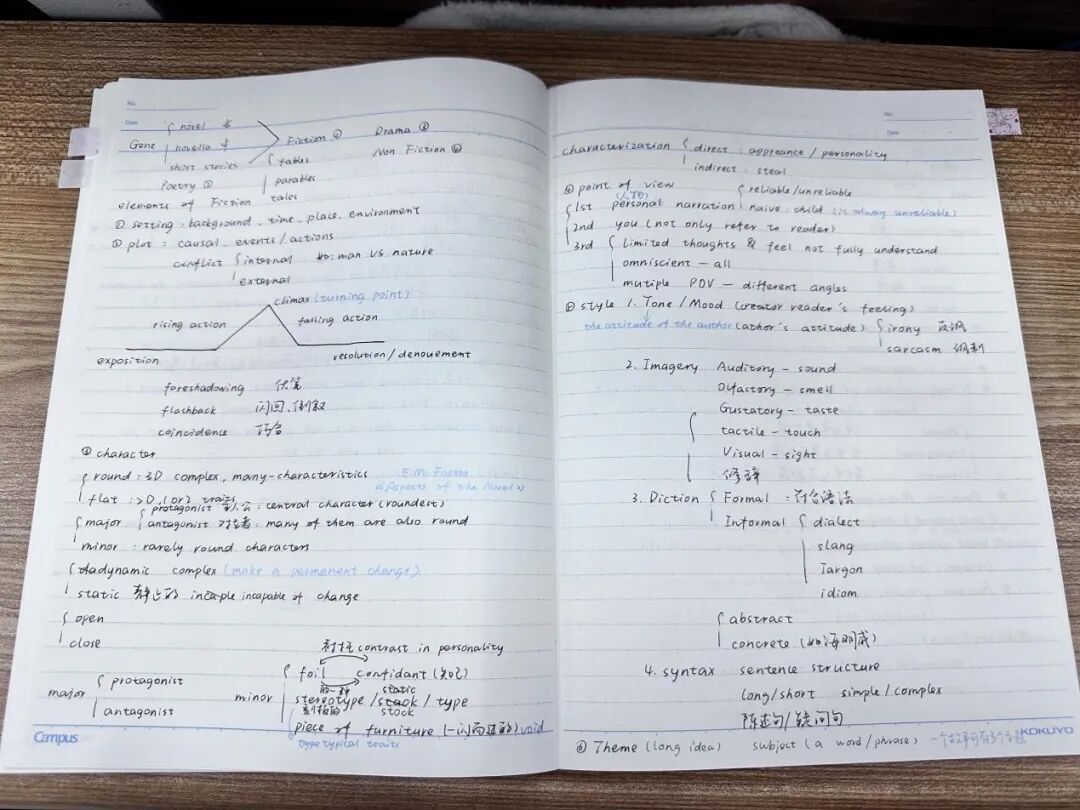 No.
Date
Gene
novel
novella
short stories
Fiction ①
Drama ③
Non Fiction ④
Poetry ②
fables
parables
tales
elements of Fiction
① setting : background、time、place、environment
② plot : causal、events/actions
conflict internal 如: man VS nature
external
climax (turning point)
rising action
falling action
exposition
resolution / denouement
foreshadowing 伏笔
flashback 闪回、倒叙
coincidence 巧合
③ character
round : 3D complex, many-characteristics
E.M. Forster
《Aspects of the Novel》
flat : 2D 1 or 2 traits
major protagonist 主人公 : central character (roundest)
antagonist 对抗者 : many of them are also round
minor : rarely round characters
dynamic complex (make a permanent change)
static 静止的 incapable of change
open
close
衬托 contrast in personality
major protagonist
antagonist
minor
foil confidant (知己)
static
stereotype / stock / type
刻板的 stock
piece of furniture (一闪而过的) void
type typical traits
Campus
No.
Date
characterization direct : appreance / personality
indirect : steal
④ point of view
reliable/unreliable
(人物)
1st personal narration naive : child (is alway unreliable)
2nd you (not only refer to reader)
3rd Limited thoughts & feel not fully understand
omniscient — all
mutiple POV — different angles
⑤ style 1. Tone / Mood (creator reader's feeling)
the attitude of the author (athor's attitude)
irony 反讽
sarcasm 讽刺
2. Imagery Auditory — sound
Olfactory — smell
Gustatory — taste
tactile — touch
Visual — sight
修辞
3. Diction Formal : 符合语法
Informal dialect
slang
Jargon
idiom
abstract
concrete (如海明威)
4. syntax sentence structure
long/short simple/complex
陈述句/疑问句
⑥ Theme (long idea) subject (a word/phrase) 一个故事可有多个主题
KOKUYO